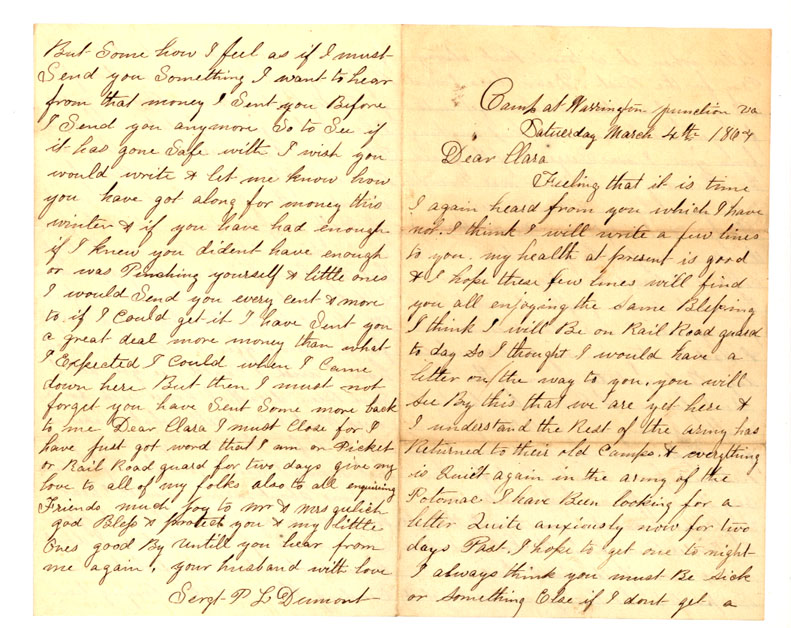 Camp at Warrington junction va
Saturday March 4th 1864
Dear Clara
Feeling that it is time
I again heard from you which I have
not. I think I will write a few lines
to you. my health at present is good
& I hope these few lines will find
you all enjoying the same Blessing
I think I will Be on Rail Road guard
to day So I thought I would have a
letter on the way to you. you will
See By this that we are yet here &
I understand the Rest of the army has
Returned to their old Camps. & everything
is Quiet again in the army of the
Potomac I have Been looking for a
letter Quite anxiously now for two
days Past. I hope to get one to night
I always think you must Be Sick
or Something Else if I dont get a
But Some how I feel as if I must
Send you Something I want to hear
from that money I Sent you Before
I Send you anymore So to See if
it has gone Safe with I wish you
would write & let me know how
you have got along for money this
winter & if you have had enough
if I knew you dident have enough
or was Pinching yourself & little ones
I would Send you every cent & more
to if I Could get it I have Sent you
a great deal more money than what
I Expected I Could when I Came
down here But then I must not
forget you have Sent Some more back
to me Dear Clara I must Close for I
have just got word that I am on Picket
or Rail Road guard for two days give my
love to all of my folks also to all enquiring
Friends much joy to mr & mrs gulich
god Bless & protect you & my little
Ones good By Untill you hear from
me again. your husband with love
Sergt P L Dumont